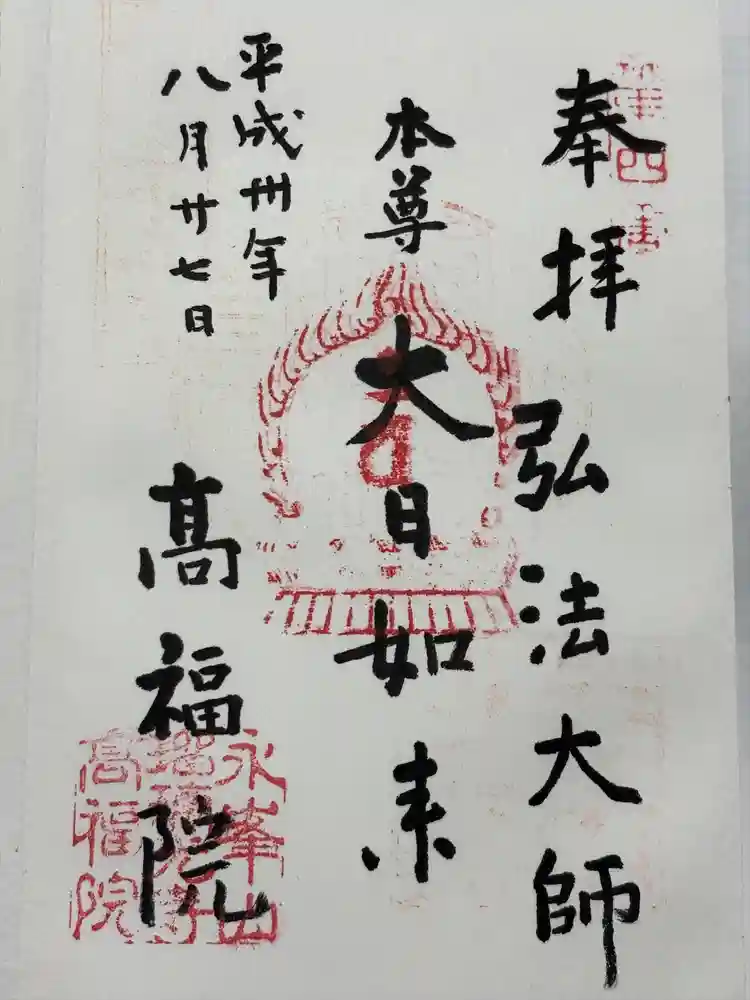 奉拝
弘法大師
本尊
大日如来
平成卅年
八月廿七日
高福院
永峯山
高福院